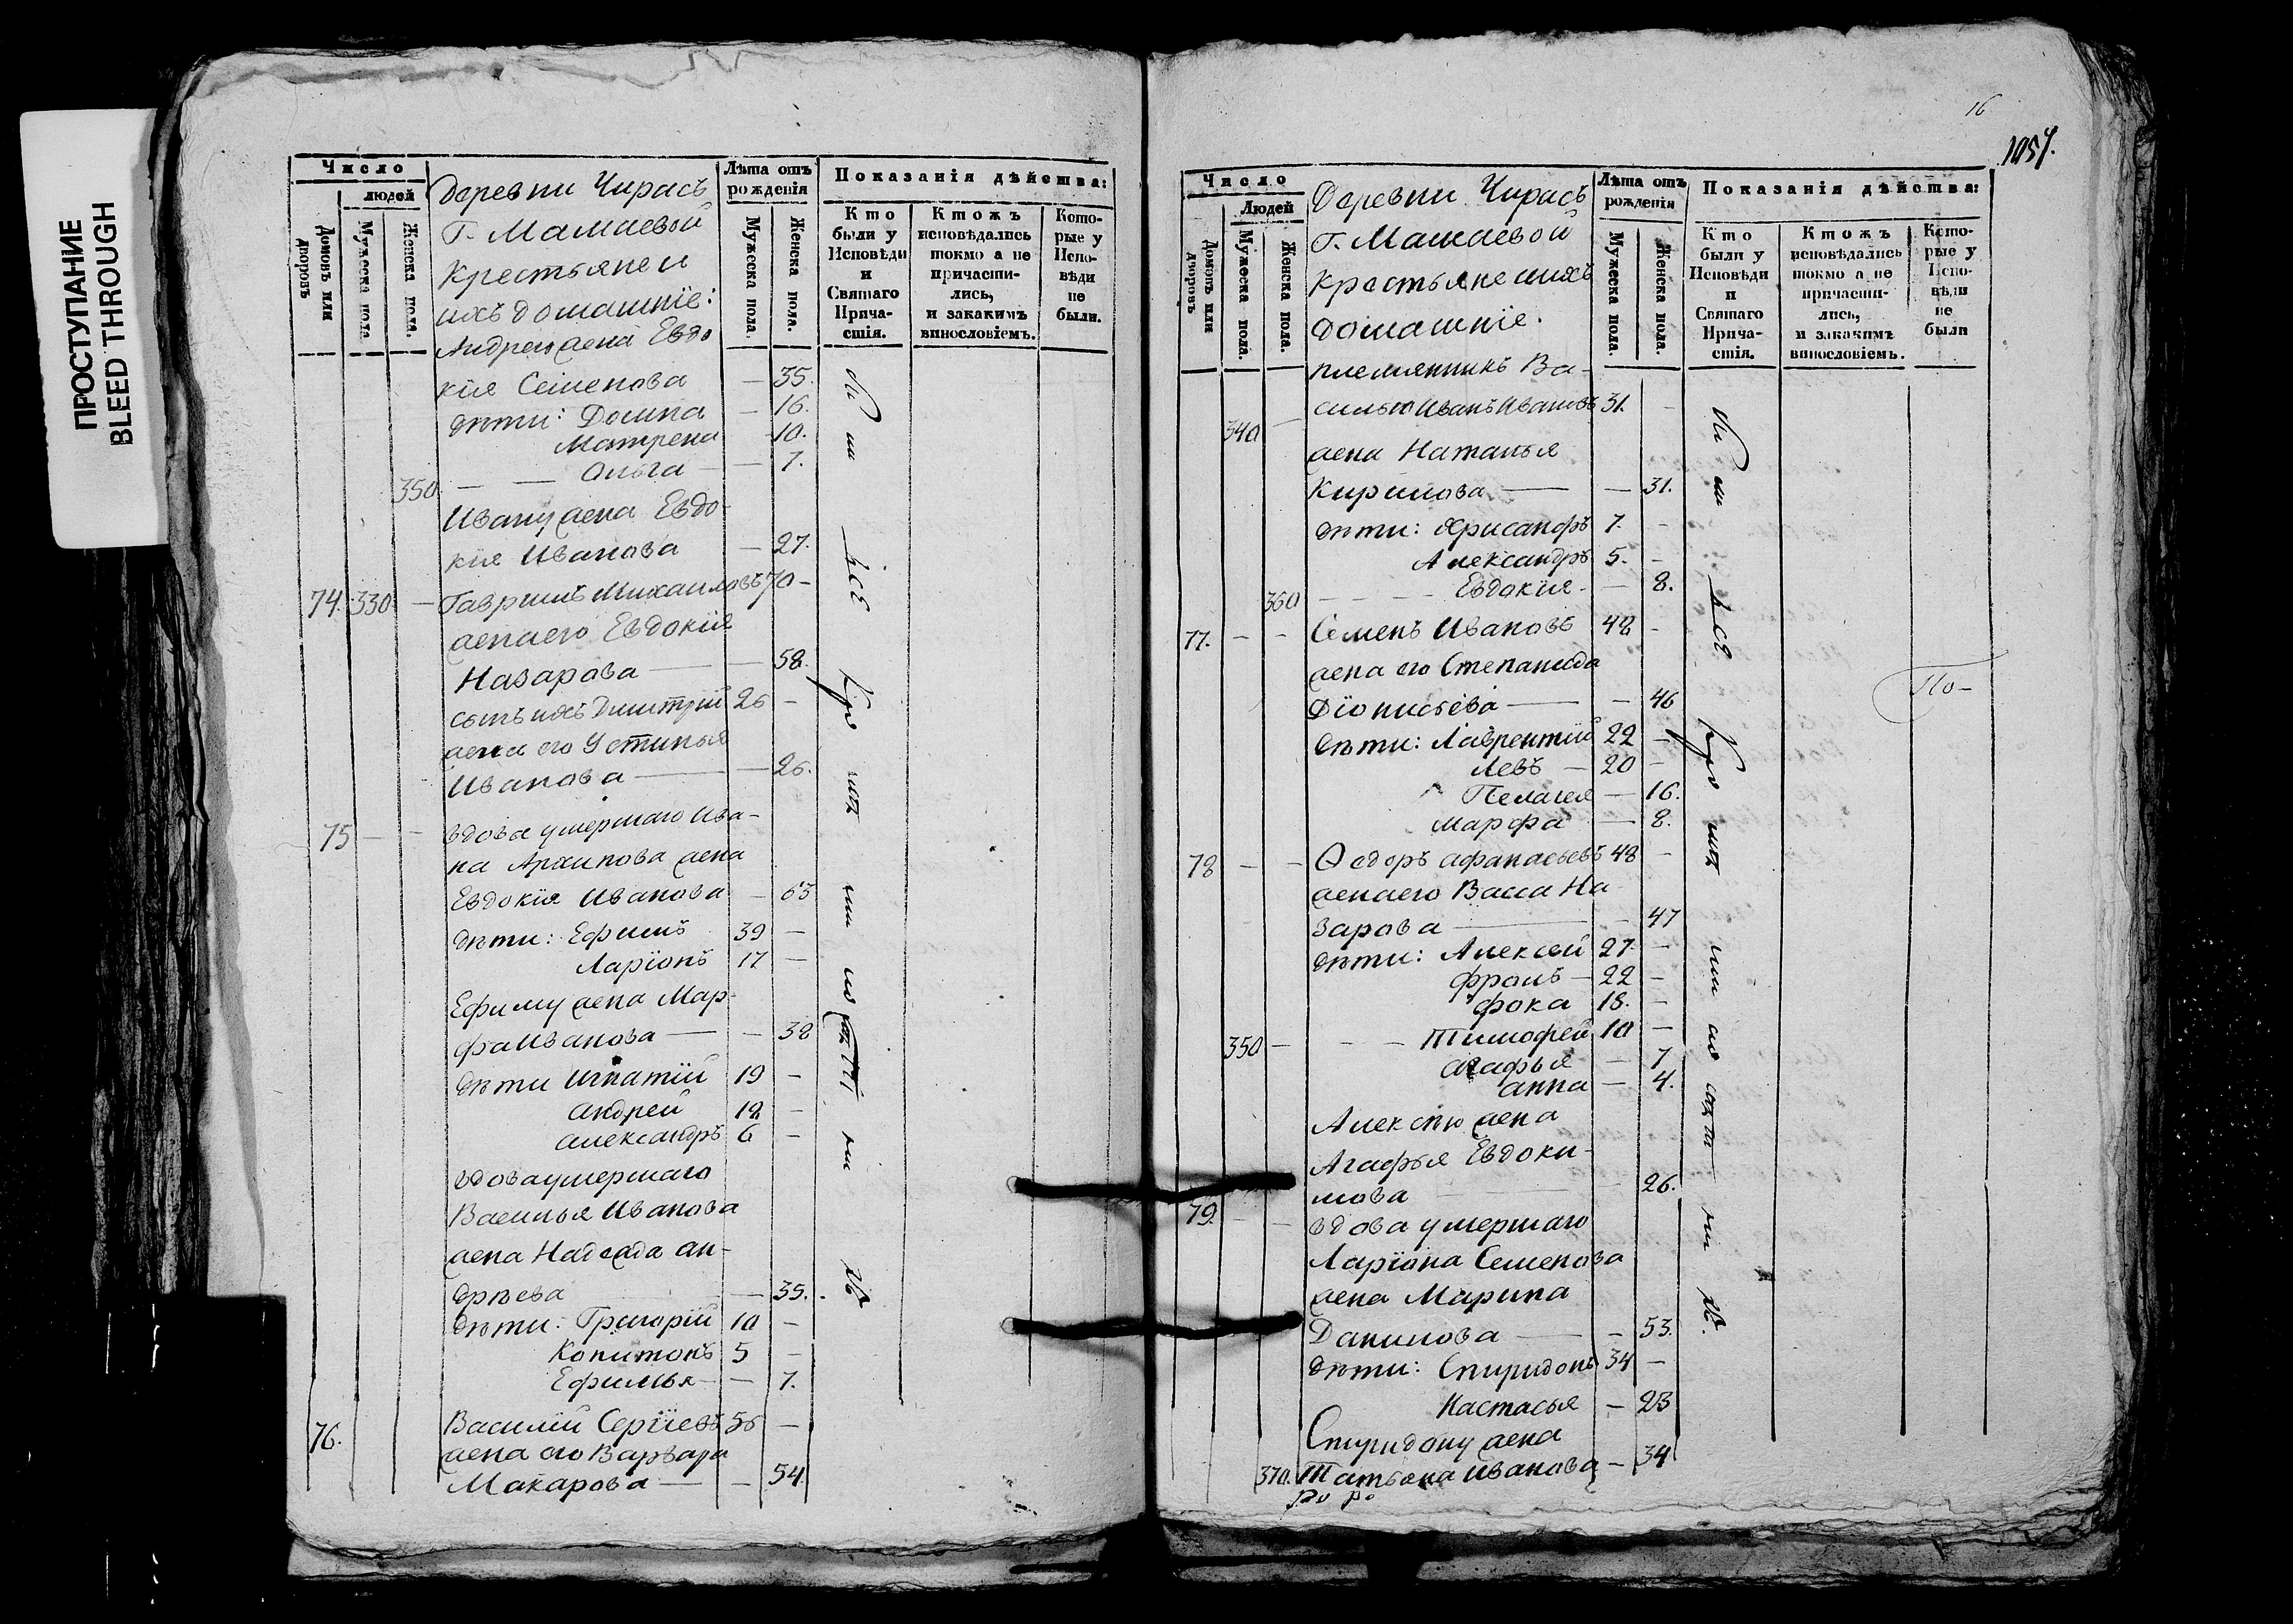 ПРОСТУПАНИЕ
BLEED THROUGH
Число
людей
Домовъ или дворовъ
Мужеска пола.
Женска пола.
Деревни Чирасъ
Г. Мамаевой
крестьяне и
ихъ домашнїе:
Андрею жена Евдо
Лѣта отъ рожденія
Мужеска пола.
Женска пола.
Показанія дѣйства:
Кто были у Исповѣди и Святаго Прича-стія.
Ктожъ исповѣдались токмо а не причасти-лись, и закакимъ винословіемъ.
Кото-рые у Испо-вѣди не были.
кїя Семенова — 35.
дѣти: Домна — 16.
Матрена 10.
350 — — Ольга — — 7.
Ивану жена Евдо-
кїя Иванова — 27.
74. 330 — Гаврилъ Михаиловъ 70 -
жена его Евдокїя
Назарова — — 58.
сынъ ихъ Димитрїй 26 -
жена его Устинья
Иванова — — 26.
75 — — вдова умершаго Ива-
на Архипова жена
Евдокїя Иванова — 65
дѣти: Ефимъ 39 —
Ларїонъ 17 —
Ефиму жена Мар-
фа Иванова — — 38
дѣти Игнатїй 19 -
Андрей 12 -
Александръ 6 -
вдова умершаго
Василья Иванова
жена Надежда Ан-
дрѣева — 35.
дѣти: Григорїй 10 -
Капитонъ 5 —
Ефимья — — 7.
76. Василїй Сергїевъ 56 —
жена его Варвара
Макарова — — 54.
16
1057.
Число
Людей
Домовъ или дворовъ
Мужеска пола.
Женска пола.
Деревни Чирасъ
Г. Мамаевой
крестьяне ихъ
домашнїе.
Лѣта отъ рожденія
Мужеска пола.
Женска пола.
Показанія дѣйства:
Кто были у Исповѣди и Святаго Прича-стія.
Ктожъ исповѣдались токмо а не причасти-лись, и закакимъ винословіемъ.
Кото-рые у Испо-вѣди не были
племянникъ Ва-
силью Иванъ Ивановъ 31. -
340 —
жена Наталья
Кирилова — — 31.
дѣти: Хрисанфъ 7. -
Александръ 5. -
360 — — — Евдокїя — — 8.
77. - - Семенъ Ивановъ 48 -
жена его Степанида
Дїонисьева — — 46
По-
дѣти: Лаврентїй 22 —
Левъ — 20 —
Пелагея — 16.
Марфа — 8.
78 - - Ѳедоръ Афанасьевъ 48 -
жена его Васса На-
зарова — — 47
дѣти: Алексѣй 27. -
Фролъ — 22 -
Фока 18. -
350 — — — Тимофей 10 —
Агафья — 7
Анна — 4.
Алексѣю жена
Агафья Евдоки-
мова — 26.
79. - - вдова умершаго
Ларїона Семенова
жена Марина
Данилова — — 53.
дѣти: Спиридонъ 34 —
Настасья — 23
Спиридону жена
370. Татьяна Иванова — 34